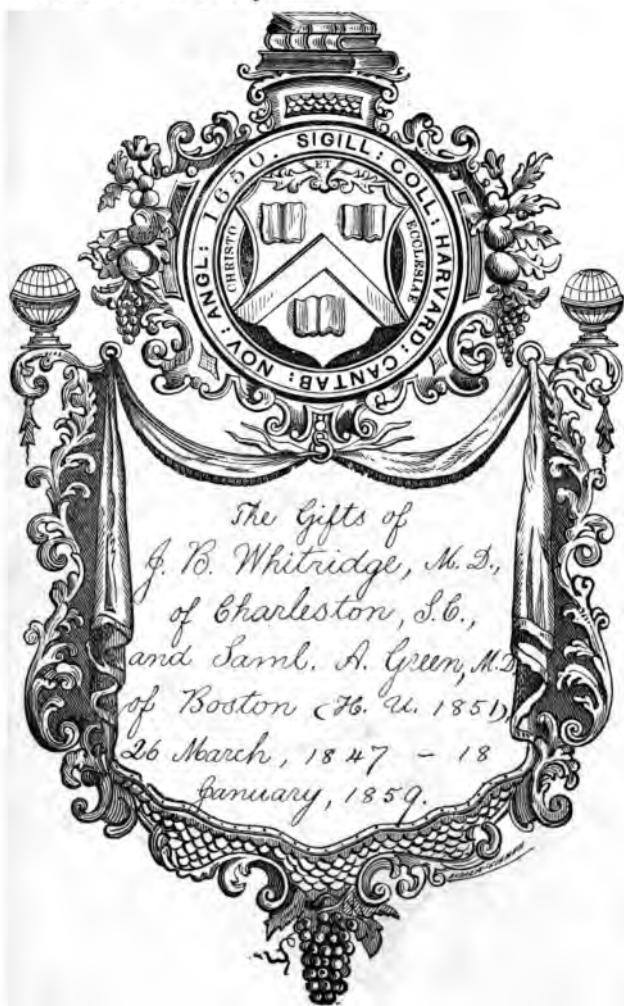 SIGILL: COLL: HARVARD: CANTAB: NOV: ANGL: 1650.
CHRISTO
ET
ECCLESIAE
The Gifts of
J. B. Whitridge, M.D.,
of Charleston, S.C.,
and Saml. A. Green, M.D
of Boston (H. U. 1851)
26 March, 1847 - 18
January, 1859.